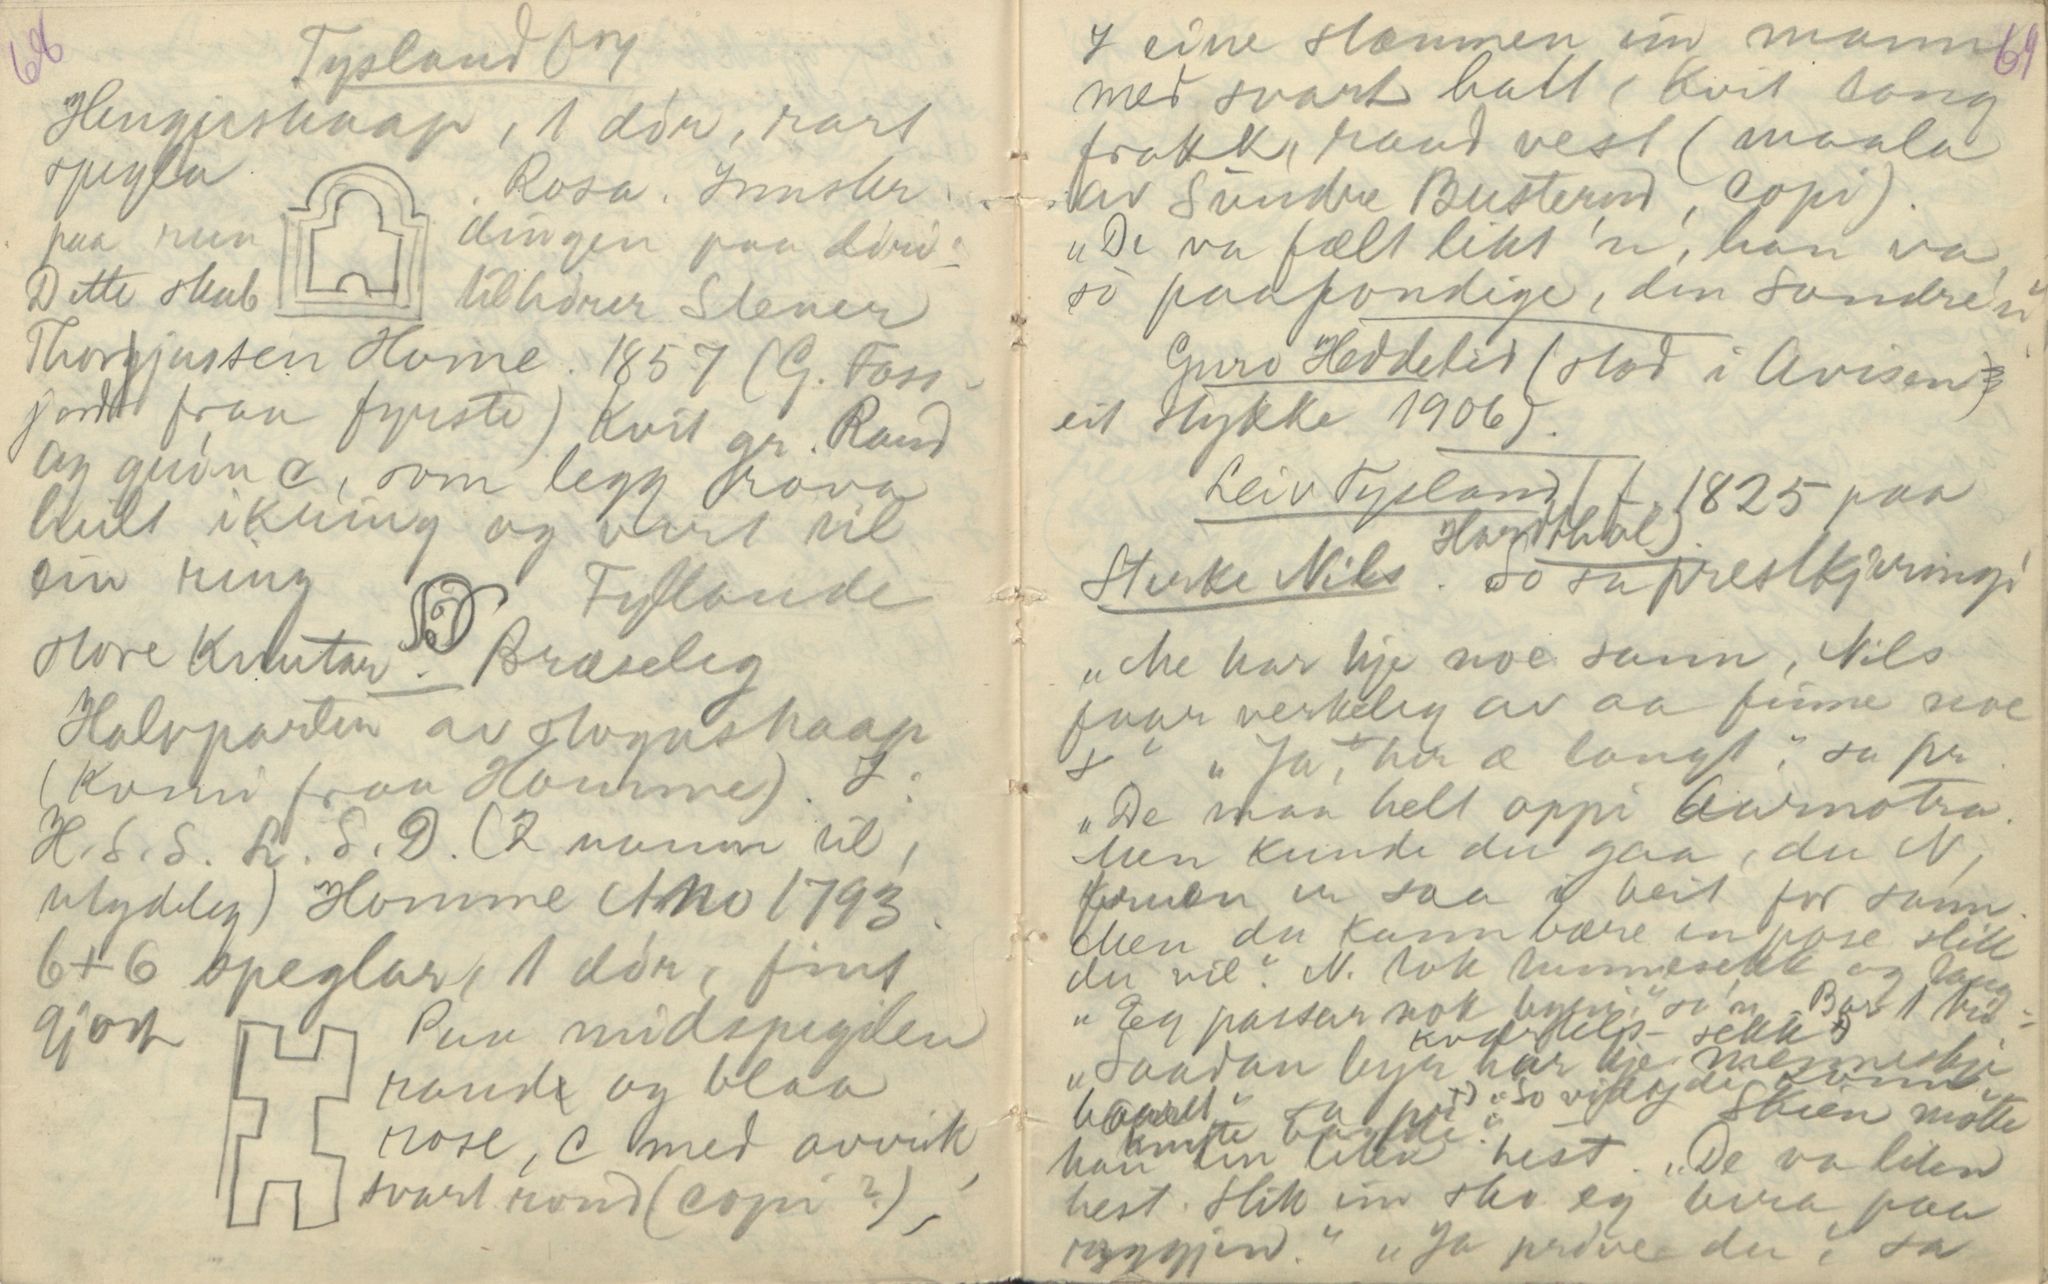 68
Tysland
Hengjeskaap, 1 dör, rart
spegla . Rosa. Innskr
paa run dingen paa döri:
Dette skab tilhörer Stener
Thorgjussen Home. 1857 (G. Foss-
jordi fraa fyrste) Kvit gr. Raud
og grön C, som legg rova
heilt ikring og vert til
ein ring Tyslande
store Knutar. Bræseleg
Halvparten av stogeskaap
(Komi fraa Homme). I:
H.S.S. L.S.D. (2 namn til,
utydeleg) Homme Anno 1793.
6+6 speglar, 1 dör, fint
gjort Paa midspegilen
raud og blaa
rose, C med avvik
svart rond (copi?),
69
I eine stammen ein mann
med svart hatt, kvit lang
frakk, raud vest (maala
av Sündre Busterud, copi).
"De va fælt likt 'n, han va
so paapondige, den Sondre'n"
Guro Heddelid (stod i Avisen
eit stykke 1906).
Leiv Tysland (f. 1825 paa
Hardthol).
Sterke Nils. So sa prestkjæringi
"Me har kje noe sann, Nils
faar verkeleg av aa finne noe
s" "Ja, her æ langt", sa pr.
"De maa helt oppi Aurnotra.
Men kunde du gaa, du N,
konen er saa i beit for sann.
Men du kann bære en pose slik
du vil". N. tok tunnesekk og
"Eg passar nok byri," sa'n. Bar 1
kvartels- sekk
"Saadan byr har kje menneskje
baaret" sa pr "So vigde
knute bagde". Skien mötte
han ein liten hest. "De va liten
hest. Slik ein sko eg bera paa
ryggjen." "Ja pröve du", sa